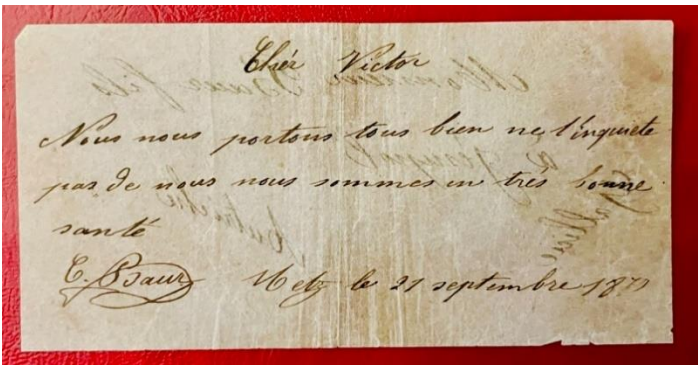 Chér Victor
Nous nous portons tous bien ne t'inquiete
pas de nous nous sommes en trés bonne
santé
E. Baur Metz le 21 septembre 1870